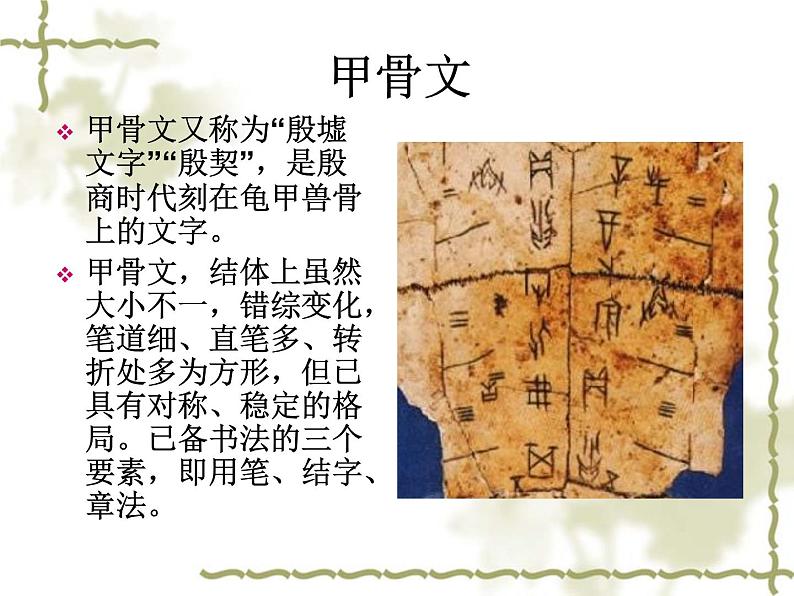 甲骨文
甲骨文又称为“殷墟
文字”“殷契”，是殷
商时代刻在龟甲兽骨
上的文字。
甲骨文，结体上虽然
大小不一，错综变化，
笔道细、直笔多、转
折处多为方形，但已
具有对称、稳定的格
局。已备书法的三个
要素，即用笔、结字、
章法。